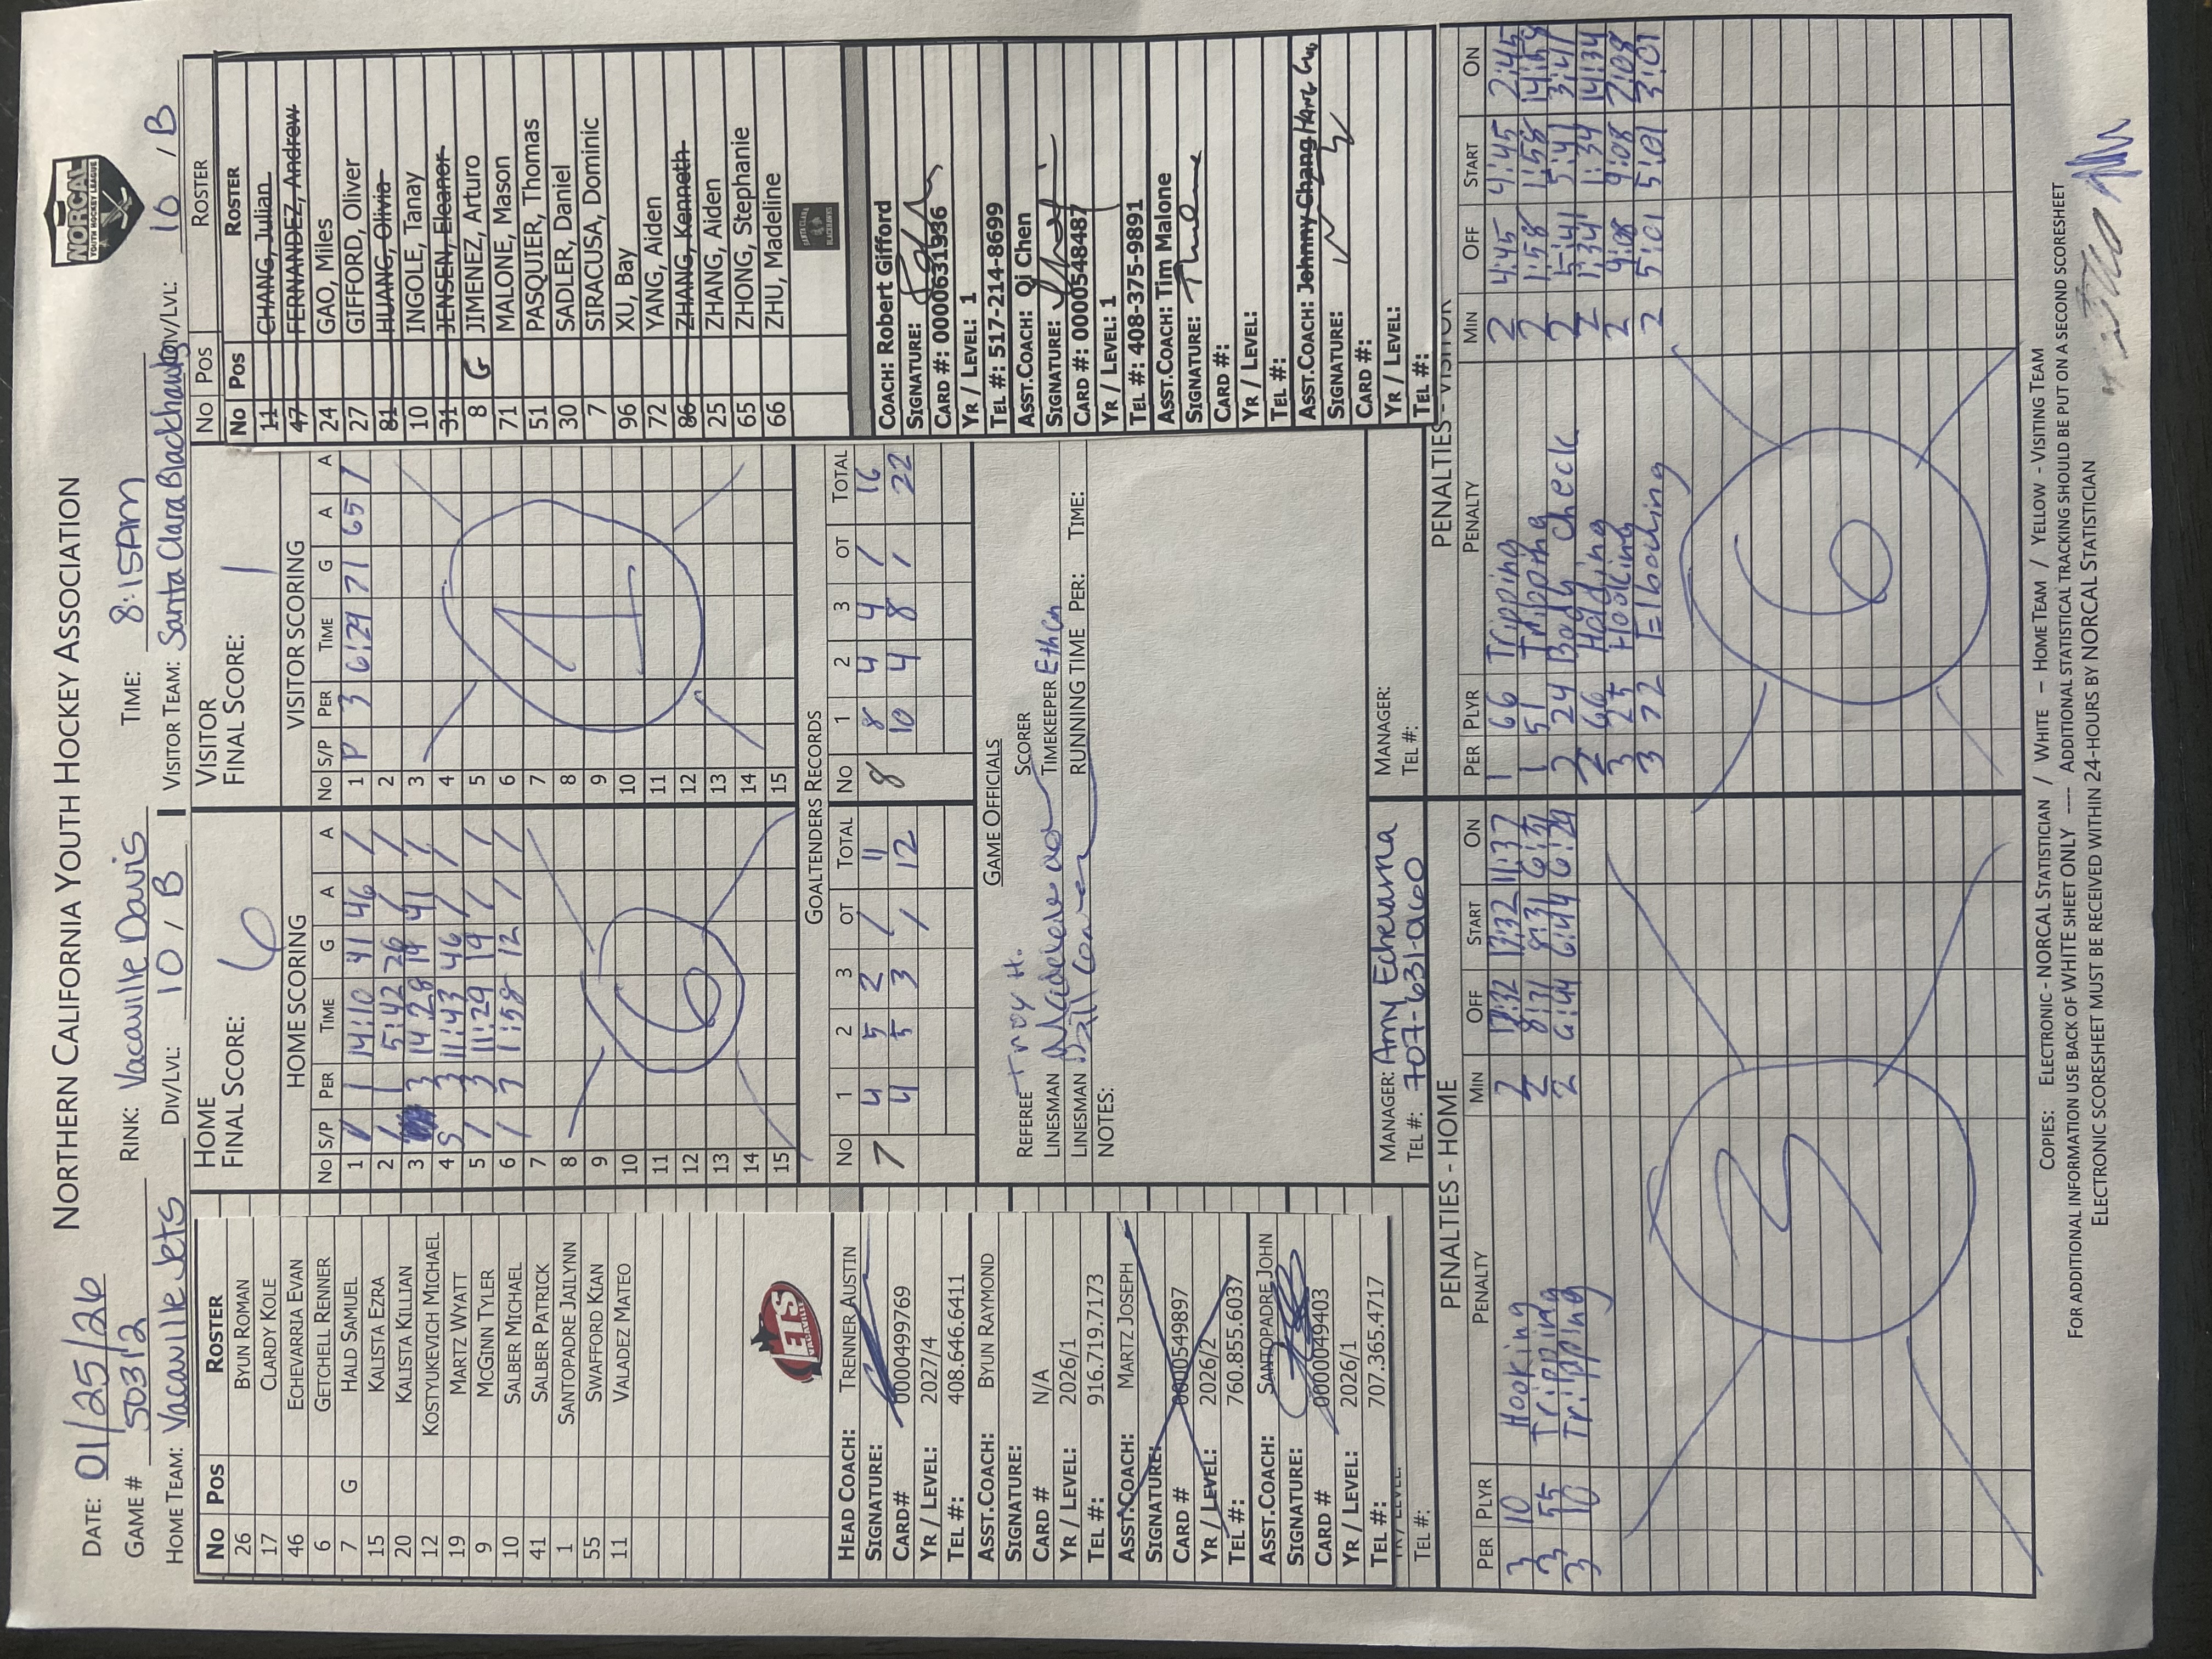 NORTHERN CALIFORNIA YOUTH HOCKEY ASSOCIATION
NORCAL
YOUTH HOCKEY LEAGUE
DATE: 01/25/26 RINK: Vacaville Davis TIME: 8:15AM
GAME # 50312 DIV/LVL: 10 / B
HOME TEAM: Vacaville Jets VISITOR TEAM: Santa Clara Blackhawks DIV/LVL: 10 / B
No Pos ROSTER
26 BYUN ROMAN
17 CLARDY KOLE
46 ECHEVARRIA EVAN
6 GETCHELL RENNER
7 G HALD SAMUEL
15 KALISTA EZRA
20 KALISTA KILLIAN
12 KOSTYUKEVICH MICHAEL
19 MARTZ WYATT
9 MCGINN TYLER
10 SALBER MICHAEL
41 SALBER PATRICK
1 SANTOPADRE JAILYNN
55 SWAFFORD KIAN
11 VALADEZ MATEO
JETS
VACAVILLE
HEAD COACH: TRENNER AUSTIN
SIGNATURE:
CARD# 0000499769
YR / LEVEL: 2027/4
TEL #: 408.646.6411
ASST.COACH: BYUN RAYMOND
SIGNATURE:
CARD # N/A
YR / LEVEL: 2026/1
TEL #: 916.719.7173
ASST.COACH: MARTZ JOSEPH
SIGNATURE:
CARD # 0000549897
YR / LEVEL: 2026/2
TEL #: 760.855.6037
ASST.COACH: SANTOPADRE JOHN
SIGNATURE:
CARD # 0000049403
YR / LEVEL: 2026/1
TEL #: 707.365.4717
TEL #:
HOME
FINAL SCORE: 6
HOME SCORING
No S/P PER TIME G A A
1 / 1 14:10 41 46 /
2 / 1 5:42 26 /
3 3 14:28 19 41 /
4 S 3 11:43 46 / /
5 / 3 11:29 19 / /
6 / 3 1:58 12 / /
7
8
9
10
11
12
13
14
15
6
VISITOR
FINAL SCORE: 1
VISITOR SCORING
No S/P PER TIME G A A
1 P 3 6:29 71 65 /
2
3
4
5
6
7
8
9
10
11
12
13
14
15
1
GOALTENDERS RECORDS
No 1 2 3 OT TOTAL No 1 2 3 OT TOTAL
7 4 5 2 / 11 8 8 4 4 / 16
4 5 3 / 12 10 4 8 / 22
GAME OFFICIALS
REFEREE Troy H. SCORER
LINESMAN TIMEKEEPER Ethan
LINESMAN RUNNING TIME PER: TIME:
NOTES:
MANAGER: Amy Echevarria MANAGER:
TEL #: 707-631-0960 TEL #:
No Pos ROSTER
No Pos ROSTER
11 CHANG, Julian
47 FERNANDEZ, Andrew
24 GAO, Miles
27 GIFFORD, Oliver
81 HUANG, Olivia
10 INGOLE, Tanay
31 JENSEN, Eleanor
8 G JIMENEZ, Arturo
71 MALONE, Mason
51 PASQUIER, Thomas
30 SADLER, Daniel
7 SIRACUSA, Dominic
96 XU, Bay
72 YANG, Aiden
86 ZHANG, Kenneth
25 ZHANG, Aiden
65 ZHONG, Stephanie
66 ZHU, Madeline
SANTA CLARA
BLACKHAWKS
COACH: Robert Gifford
SIGNATURE:
CARD #: 0000631936
YR / LEVEL: 1
TEL #: 517-214-8699
ASST.COACH: Qi Chen
SIGNATURE:
CARD #: 0000548487
YR / LEVEL: 1
TEL #: 408-375-9891
ASST.COACH: Tim Malone
SIGNATURE:
CARD #:
YR / LEVEL:
TEL #:
ASST.COACH: Johnny Chang
SIGNATURE:
CARD #:
YR / LEVEL:
TEL #:
PENALTIES - HOME
PER PLYR PENALTY MIN OFF START ON
3 10 Hooking 2 13:32 13:32 11:37
3 55 Tripping 2 8:31 8:31 6:31
3 10 Tripping 2 6:44 6:44 6:29
3
PENALTIES - VISITOR
PER PLYR PENALTY MIN OFF START ON
1 66 Tripping 2 4:45 4:45 2:45
1 51 Tripping 2 1:58 1:58 14:58
2 24 Body check 2 5:41 5:41 3:41
2 66 Holding 2 1:34 1:34 14:34
3 25 Hooking 2 9:08 9:08 7:08
3 72 Elboching 2 5:01 5:01 3:01
6
COPIES: ELECTRONIC - NORCAL STATISTICIAN / WHITE – HOME TEAM / YELLOW - VISITING TEAM
FOR ADDITIONAL INFORMATION USE BACK OF WHITE SHEET ONLY ---- ADDITIONAL STATISTICAL TRACKING SHOULD BE PUT ON A SECOND SCORESHEET
ELECTRONIC SCORESHEET MUST BE RECEIVED WITHIN 24-HOURS BY NORCAL STATISTICIAN